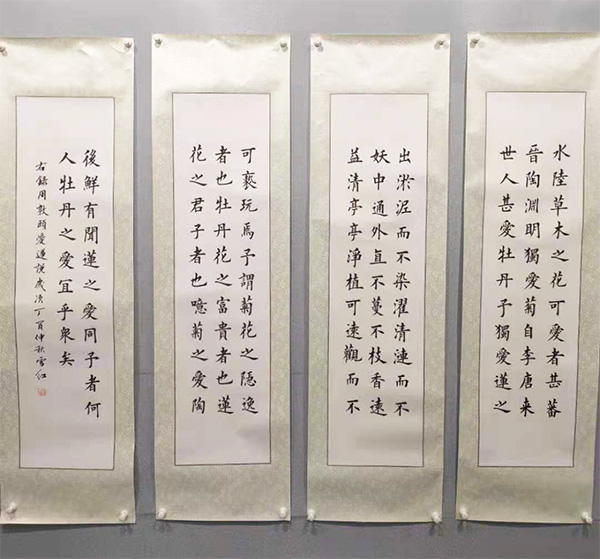 水陸草木之花可愛者甚蕃
晉陶淵明獨愛菊自李唐来
世人甚愛牡丹予獨愛蓮之
出淤泥而不染濯清漣而不
妖中通外直不蔓不枝香遠
益清亭亭淨植可遠觀而不
可褻玩焉予謂菊花之隱逸
者也牡丹花之富貴者也蓮
花之君子者也噫菊之愛陶
後鮮有聞蓮之愛同予者何
人牡丹之愛宜乎衆矣
右錄周敦頤愛蓮說歲次丁酉仲秋雪红